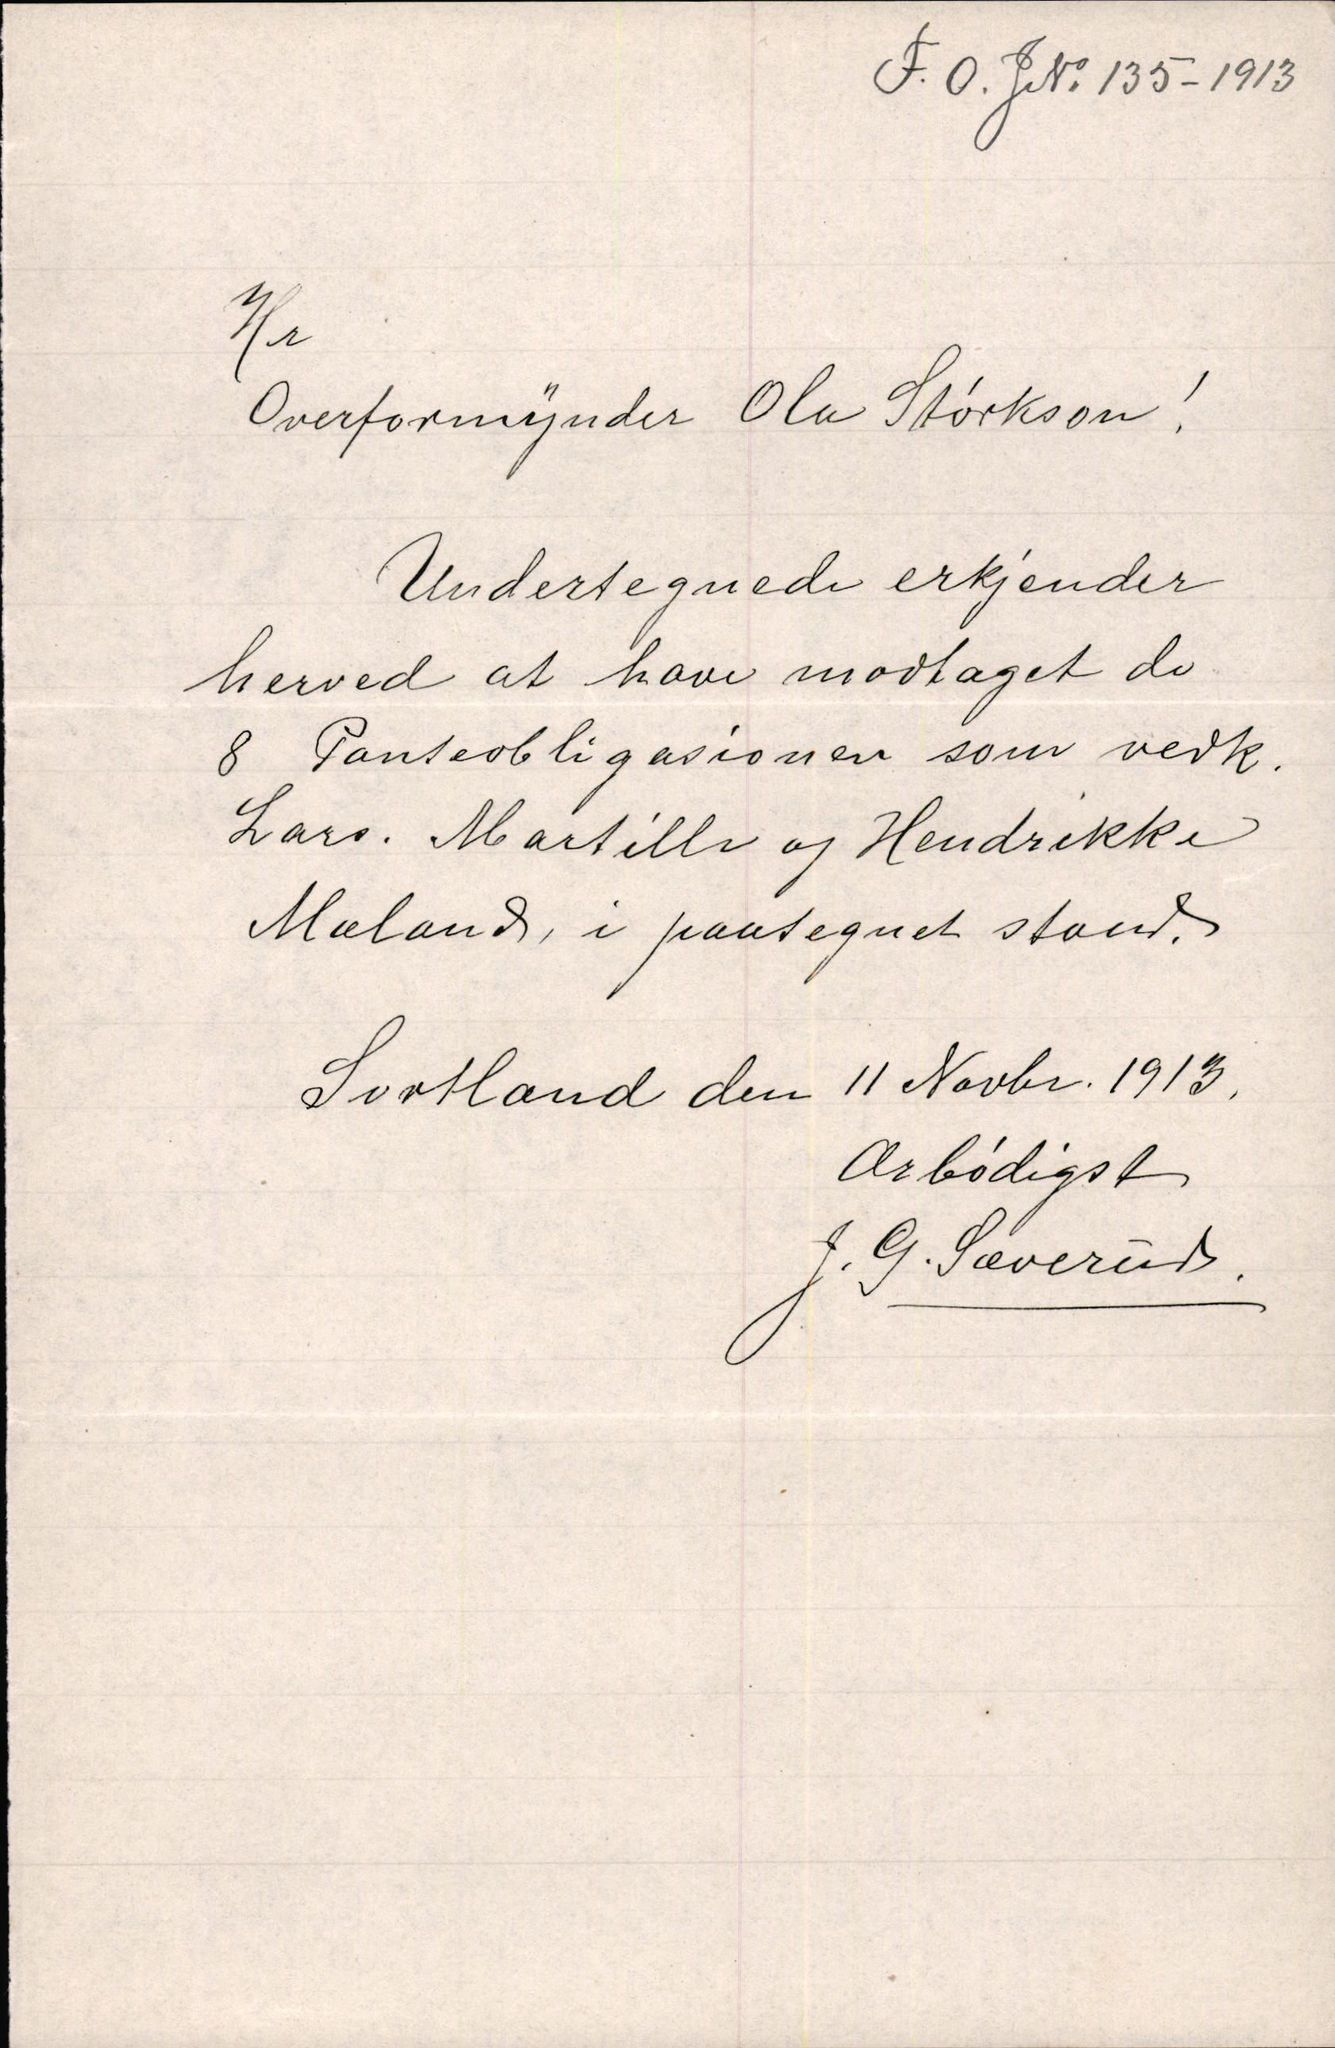 F. O. J.No. 135-1913
Hr
Overformÿnder Ola Störkson!
Undertegnede erkjender
herved at have modtaget de
8 Panteobligasioner som vedk.
Lars. Martille og Hendrikke
Mæland, i paategnet stand.
Sortland den 11 Novbr. 1913.
Ærbödigst
J. G. Sæverud.